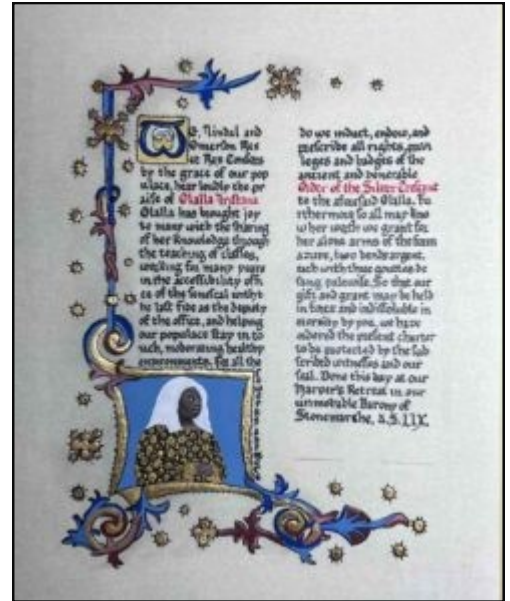 We, Tindal and
Omerion Rex
et Rex Consors
by the grace of our pop
ulace, hear loudly the pr
aise of Olalla Tristana
Olalla has brought joy
to many with the sharing
of her knowledge through
the teaching of classes,
working for many years
in the accessibility offi
ce of the Seneschal with
he last five as the deputy
of the office, and helping
our populace stay in to
uch, moderating healthy
environments. For all the
Do we induct, endow, and
prescribe all rights, privi
leges and badges of the
ancient and venerable
Order of the Silver Crescent
to the aforesaid Olalla. Fu
rthermore so all may kno
w her worth we grant for
her alone arms of the form
azure, two bends argent,
each with three gouttes de
sang palewise. So that our
gift and grant may be held
in force and indissoluble in
eternity by you, we have
ordered the present charter
to be protected by the sub
scribed witnesses and our
seal. Done this day at our
Harper's Retreat in our
unmovable Barony of
Stonemarche, A.S. LIX